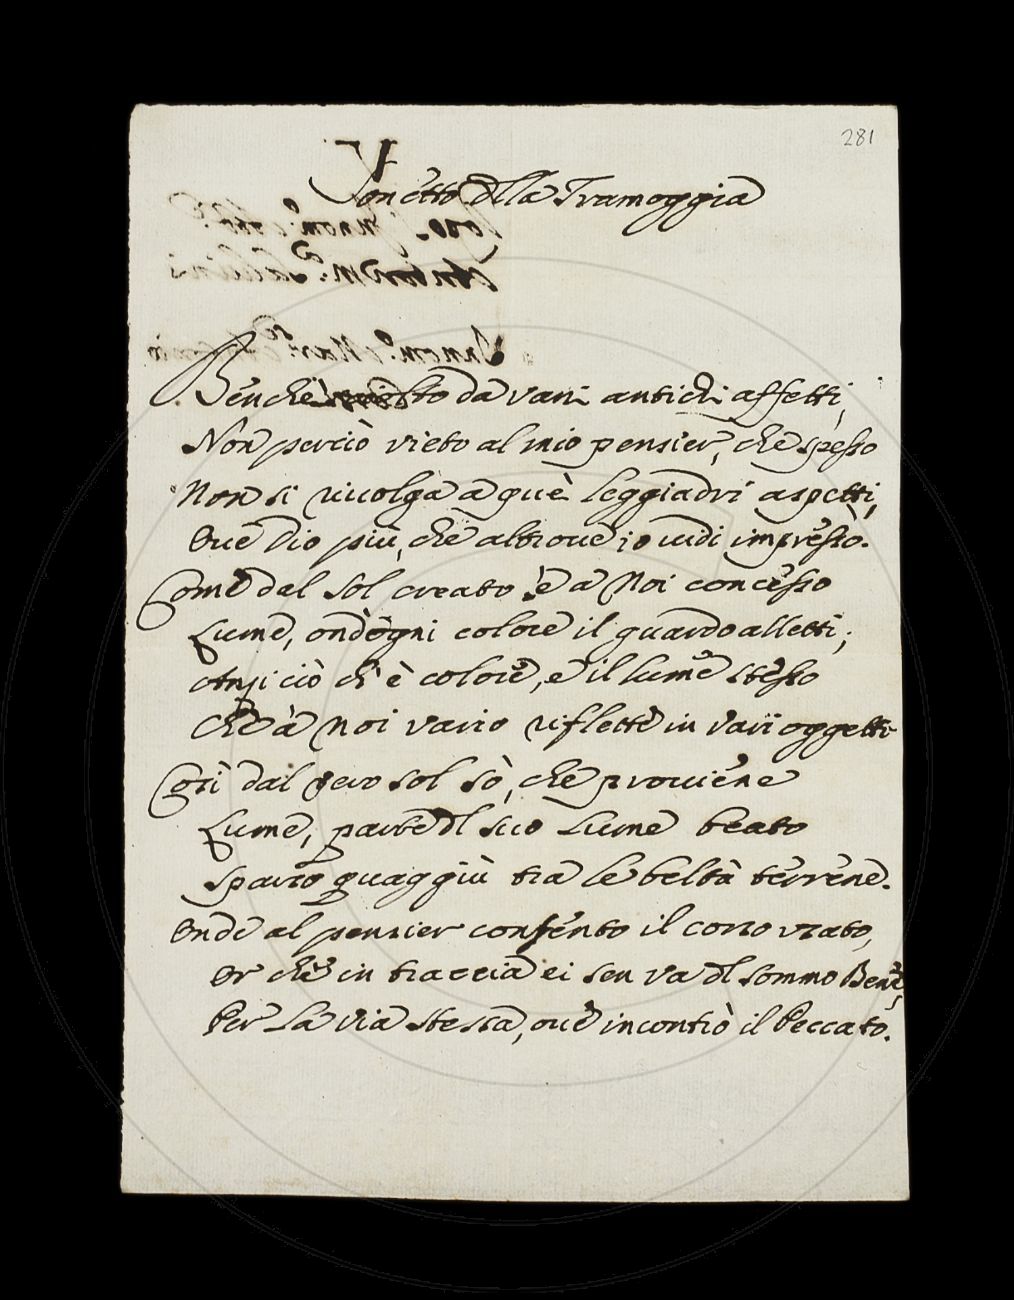 281
Sonetto dlla Tramoggia
Benchè da varii antichi affetti,
Non perciò vieto al mio pensier, che spesso
Non si rivolga a què leggiadri aspetti,
Ove Dio più, che altrove io vidi impresso.
Come dal Sol creato è a Noi concesso
Lume, ond'ogni colore il guardo alletti;
Anzi ciò ch'è colore, è il lume stesso
Che à Noi vario riflette in varii oggetti
Così dal vero sol sò, che proviene
Lume, parte dl suo Lume beato
Sparso quaggiù tra le beltà terrene.
Onde al pensier consento il corso usato,
Or che in traccia ei sen va dl sommo Bene,
Per La via stessa, ove incontrò il Peccato.